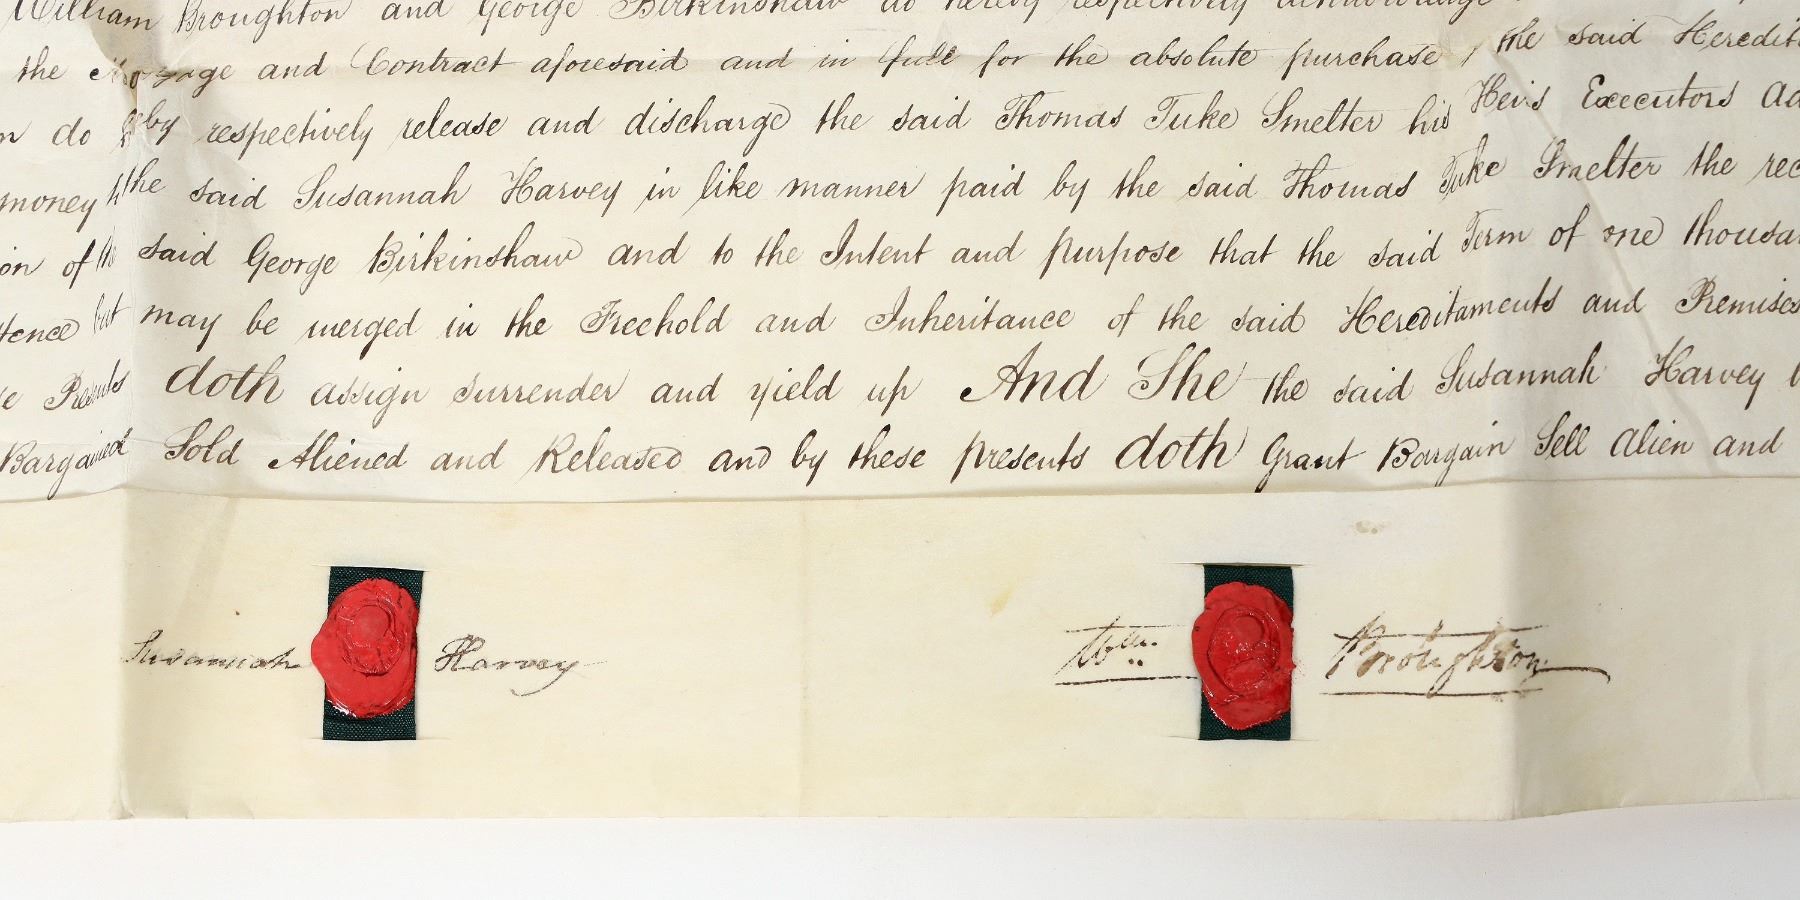 William Broughton and George Birkinshaw do hereby respectively acknowledge
the Mortgage and Contract aforesaid and in full for the absolute purchase the said Heredit
n do by respectively release and discharge the said Thomas Tuke Smelter his Heirs Executors ad
money the said Susannah Harvey in like manner paid by the said Thomas Tuke Smelter the rec
on of the said George Birkinshaw and to the Intent and purpose that the said Term of one thousa
tence but may be merged in the Freehold and Inheritance of the said Hereditaments and Premises
e Presents doth assign surrender and yield up And She the said Susannah Harvey
Bargained Sold Aliened and Released and by these presents doth Grant Bargain Sell Alien and
Susannah Harvey
Wm. Broughton